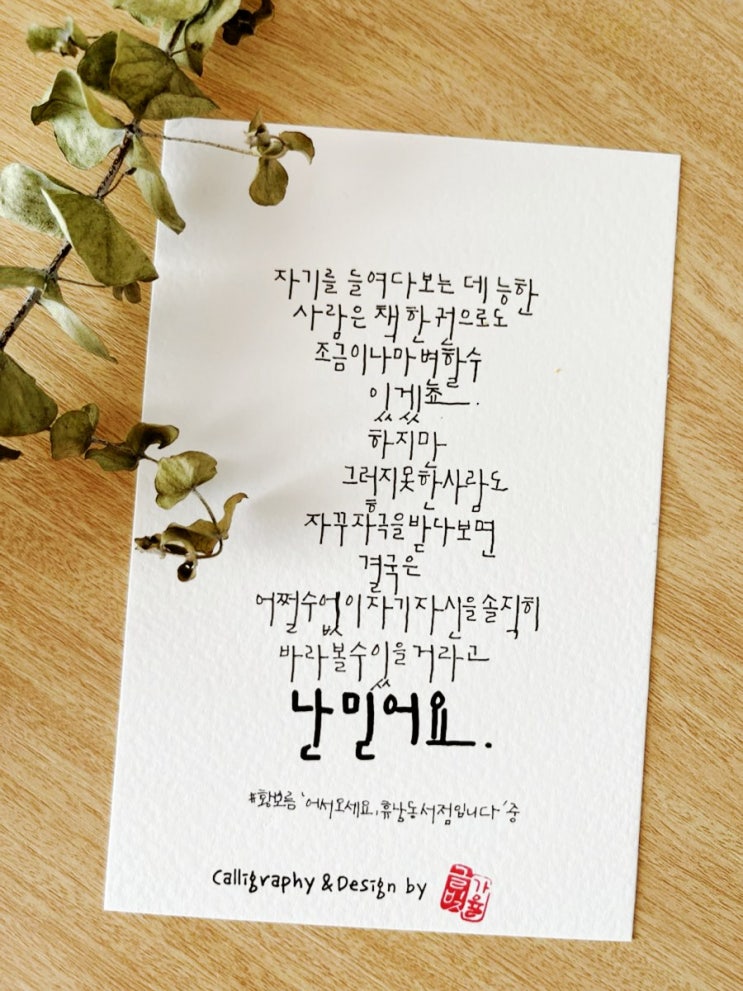 자기를 들여다보는 데 능한
사람은 책 한 권으로도
조금이나마 변할 수
있겠죠.
하지만
그렇지 못한 사람도
자꾸 자극을 받다 보면
결국은
어쩔 수 없이 자기 자신을 솔직히
바라볼 수 있을 거라고
난 믿어요.
#황보름 '어서오세요, 휴남동 서점입니다' 중
Calligraphy & Design by
글벗
가율